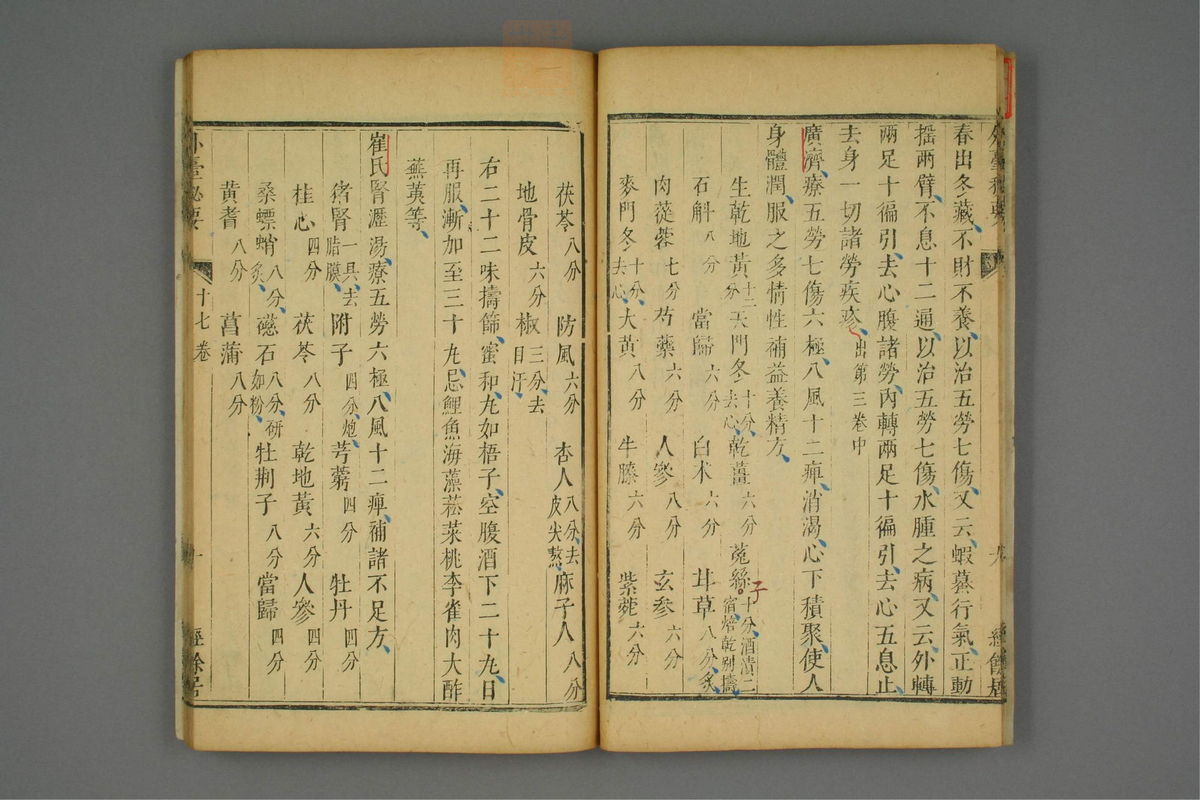 春出冬藏不財不養以治五勞七傷又云蝦蟇行氣正動
揺兩臂不息十二通以治五勞七傷水腫之病又云外轉
兩足十徧引去心腹諸勞內轉兩足十徧引去心五息止
去身一切諸勞疾疹出第三卷中
廣濟療五勞七傷六極八風十二痺消渴心下積聚使人
身體潤服之多情性補益養精方
生乾地黃十二分 天門冬十分去心 乾薑六分 菟絲子十分酒漬二宿焙乾別擣
石斛八分 當歸六分 白朮六分 甘草八分炙
肉蓯蓉七分 芍藥六分 人參八分 玄參六分
麥門冬十分去心 大黃八分 牛膝六分 紫菀六分
茯苓八分 防風六分 杏人八分去皮尖熬 麻子人八分
地骨皮六分 椒三分去目汗
右二十二味擣篩蜜和丸如梧子空腹酒下二十丸日
再服漸加至三十丸忌鯉魚海藻菘菜桃李雀肉大酢
蕪荑等
崔氏腎瀝湯療五勞六極八風十二痺補諸不足方
猪腎一具去脂膜 附子四分炮 芎藭四分 牡丹四分
桂心四分 茯苓八分 乾地黃六分 人參四分
桑螵蛸八分炙 磁石八分研如粉 牡荊子八分 當歸四分
黃耆八分 菖蒲八分
外臺秘要 十七卷 十 經餘居